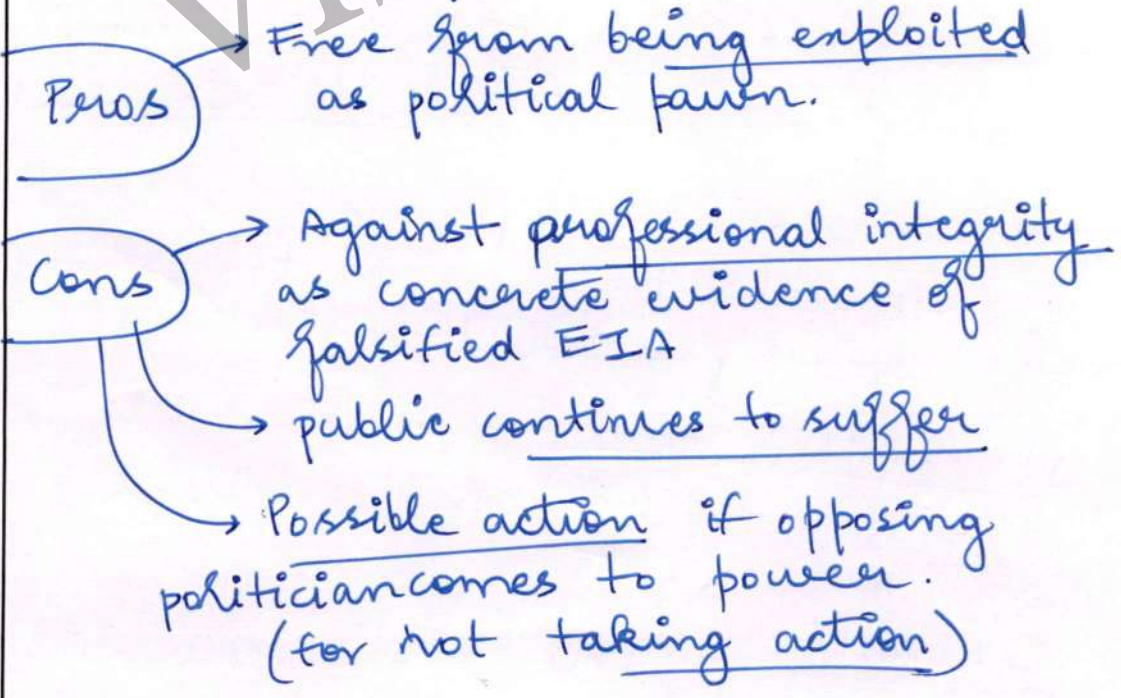 Pros → Free from being exploited
as political pawn.
Cons → Against professional integrity
as concrete evidence of
falsified EIA
→ public continues to suffer
→ Possible action if opposing
politician comes to power.
(for not taking action)